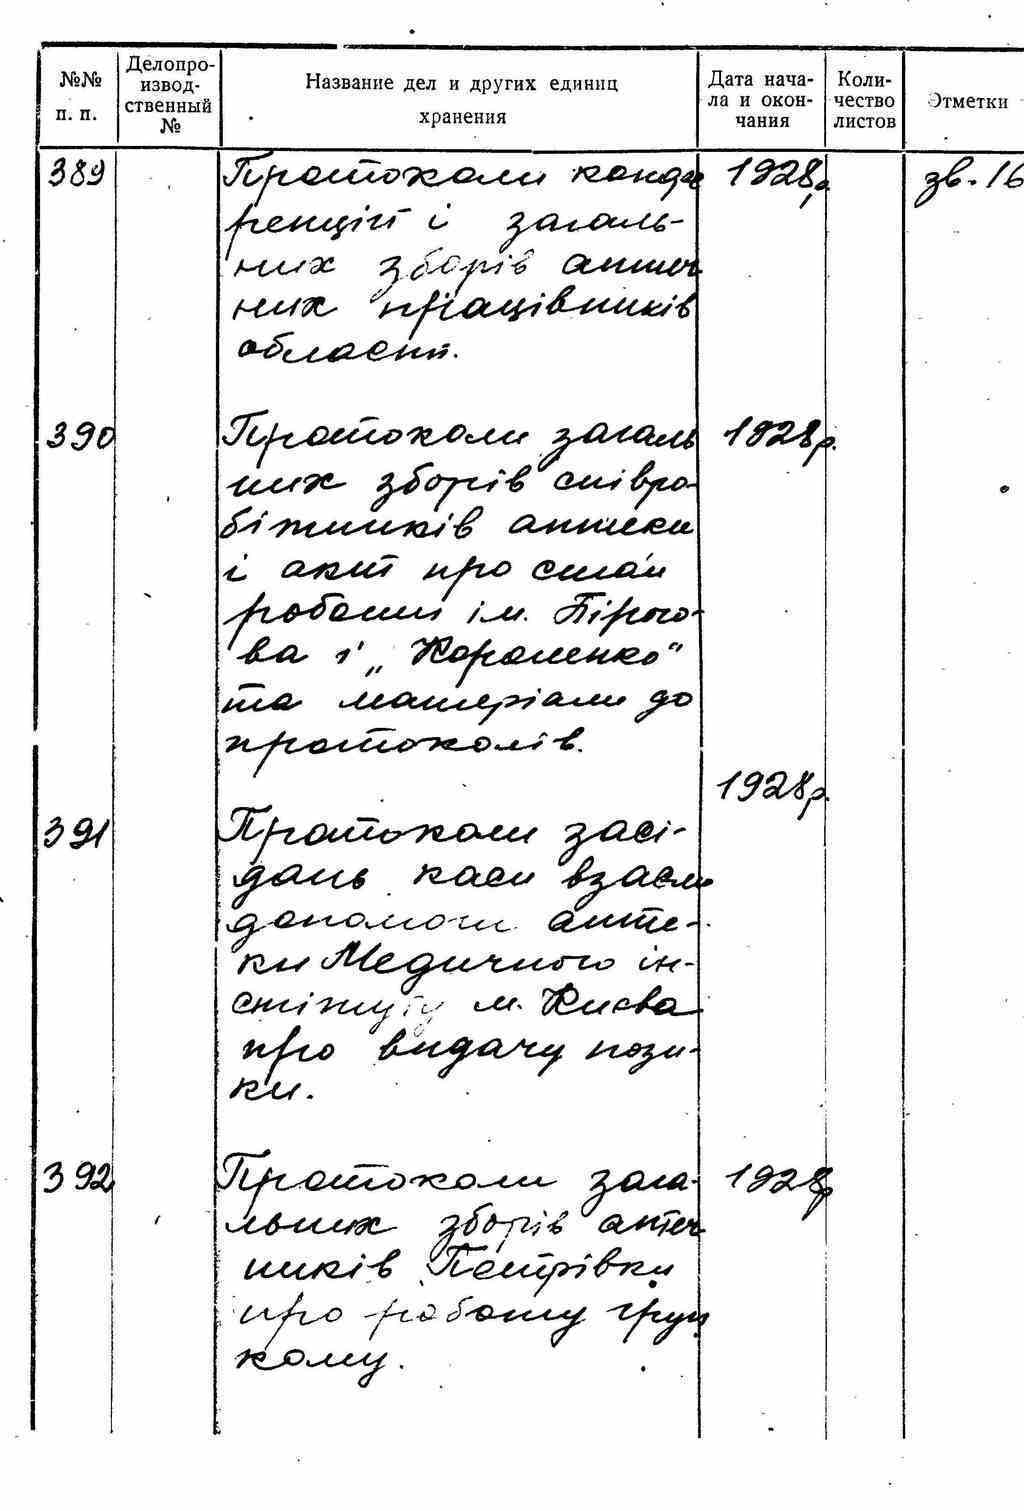 №№ п. п.
Делопро-
извод-
ственный
№
Название дел и других единиц
хранения
Дата нача-
ла и окон-
чания
Коли-
чество
листов
Отметки
389 Протоколи конфе 1928р. зв. 16
ренцій і загаль-
них зборів аптеч
них працівників
області.
390 Протоколи загаль 1928р.
них зборів співро-
бітників аптеки
і акт про стан
роботи ім. Пірого-
ва і „Короленко"
та матеріали до
протоколів.
1928р.
391 Протоколи засі-
дань каси взаємо
допомоги апте-
ки Медичного ін-
ституту м. Києва
про видачу пози-
ки.
392 Протоколи зага- 1928р
льних зборів аптеч
ників Петрівки
про роботу груп
кому.